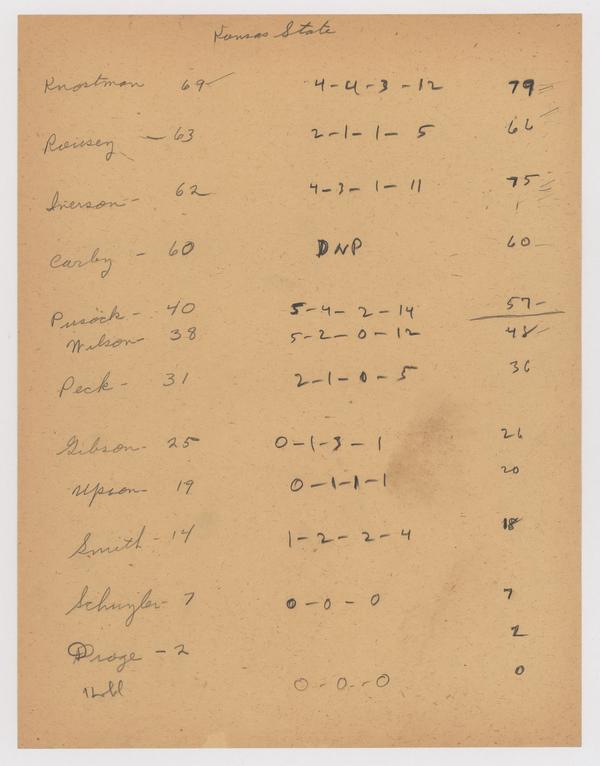 Kansas State
Knostman 69 4-4-3-12 79
Rousey - 63 2-1-1-5 66
Iverson - 62 4-3-1-11 75
Carby - 60 DNP 60
Pusock - 40 5-4-2-14 57
Wilson - 38 5-2-0-12 48
Peck - 31 2-1-0-5 36
Gibson - 25 0-1-3-1 26
Upson - 19 0-1-1-1 20
Smith - 14 1-2-2-4 18
Schuyler - 7 0-0-0 7
Droge - 2 2
0-0-0 0